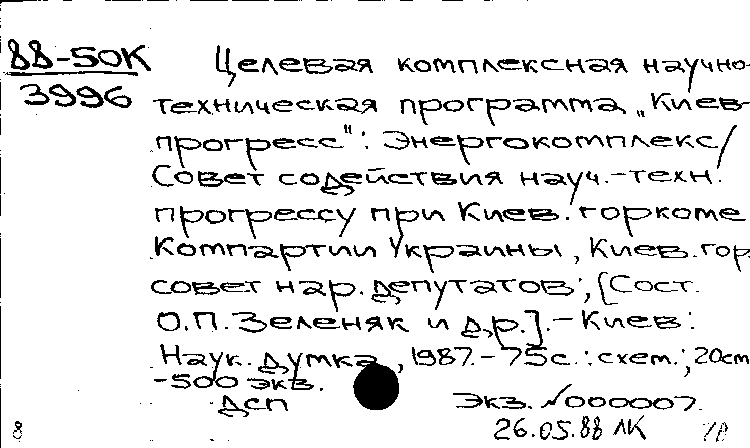 88-50К
3996
Целевая комплексная научно-
техническая программа „Киев-
прогресс": Энергокомплекс/
Совет содействия науч.-техн.
прогрессу при Киев. горкоме
Компартии Украины, Киев. гор.
совет нар. депутатов; [Сост.
О.П. Зеленяк и др.].-Киев:
Наук. думка, 1987.-75с.:схем.; 20cm
-500 экз.
ДСП Экз. №000007.
8 26.05.88 ЛК